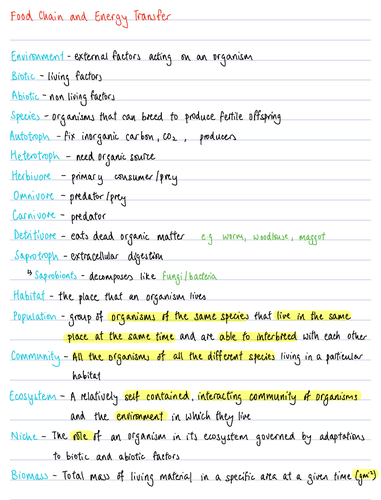 Food Chain and Energy Transfer
Environment - external factors acting on an organism
Biotic - living factors
Abiotic - non living factors
Species - organisms that can breed to produce fertile offspring
Autotroph - fix inorganic carbon, CO2, producers
Heterotroph - need organic source
Herbivore - primary consumer/prey
Omnivore - predator/prey
Carnivore - predator
Detritivore - eats dead organic matter e.g worm, woodlouse, maggot
Saprotroph - extracellular digestion
↳ Saprobionts - decomposes like Fungi/bacteria
Habitat - the place that an organism lives
Population - group of organisms of the same species that live in the same
place at the same time and are able to interbreed with each other
Community - All the organisms of all the different species living in a particular
habitat
Ecosystem - A relatively self contained, interacting community of organisms
and the environment in which they live
Niche - The role of an organism in its ecosystem governed by adaptations
to biotic and abiotic factors
Biomass - Total mass of living material in a specific area at a given time (gm⁻²)